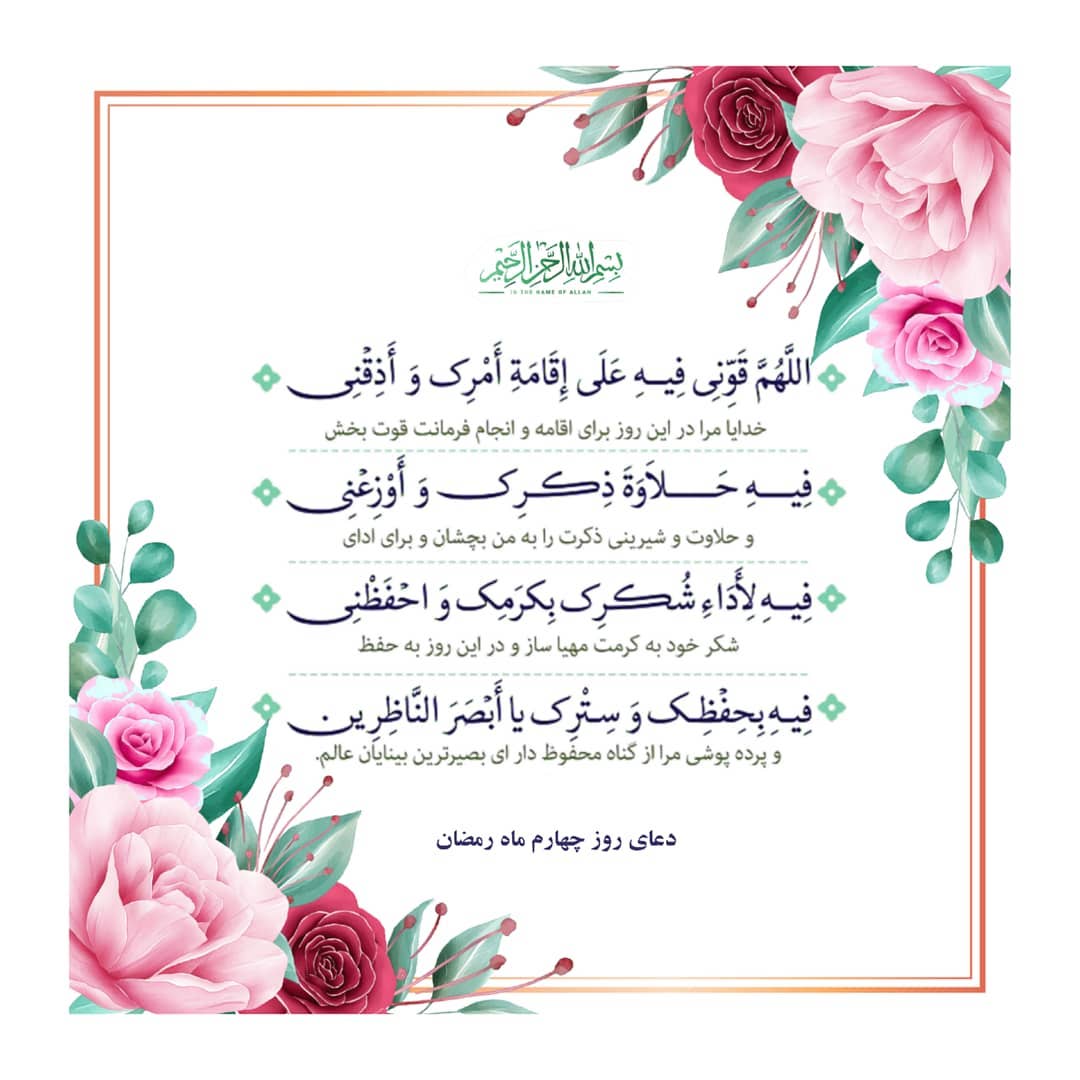 بسم الله الرحمن الرحیم
IN THE NAME OF ALLAH
اللَّهُمَّ قَوِّنِی فِیهِ عَلَی إِقَامَةِ أَمْرِک وَ أَذِقْنِی
خدایا مرا در این روز برای اقامه و انجام فرمانت قوت بخش
فِیهِ حَلاَوَةَ ذِکرِک وَ أَوْزِعْنِی
و حلاوت و شیرینی ذکرت را به من بچشان و برای ادای
فِیهِ لِأَدَاءِ شُکرِک بِکرَمِک وَ احْفَظْنِی
شکر خود به کرمت مهیا ساز و در این روز به حفظ
فِیهِ بِحِفْظِک وَ سِتْرِک یا أَبْصَرَ النَّاظِرِین
و پرده پوشی مرا از گناه محفوظ دار ای بصیرترین بینایان عالم.
دعای روز چهارم ماه رمضان